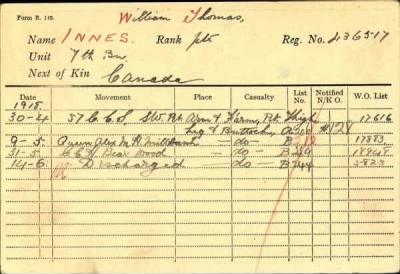 Form B. 148.
William Thomas,
Name INNES. Rank Pte Reg. No. 236517
Unit 7th Bn.
Next of Kin Canada
Date Movement Place Casualty List No. Notified N.K.O. W.O. List
1918.
30-4 57 C.C.S. SW. Rt Arm & Farm, Rt Thigh 17616
Leg & Buttocks A300
9-5 Queen Alex M.H. Millbank —do— B 17883
31-5 C.C.H. Bear Wood —do— B
14-6 Discharged —do— B